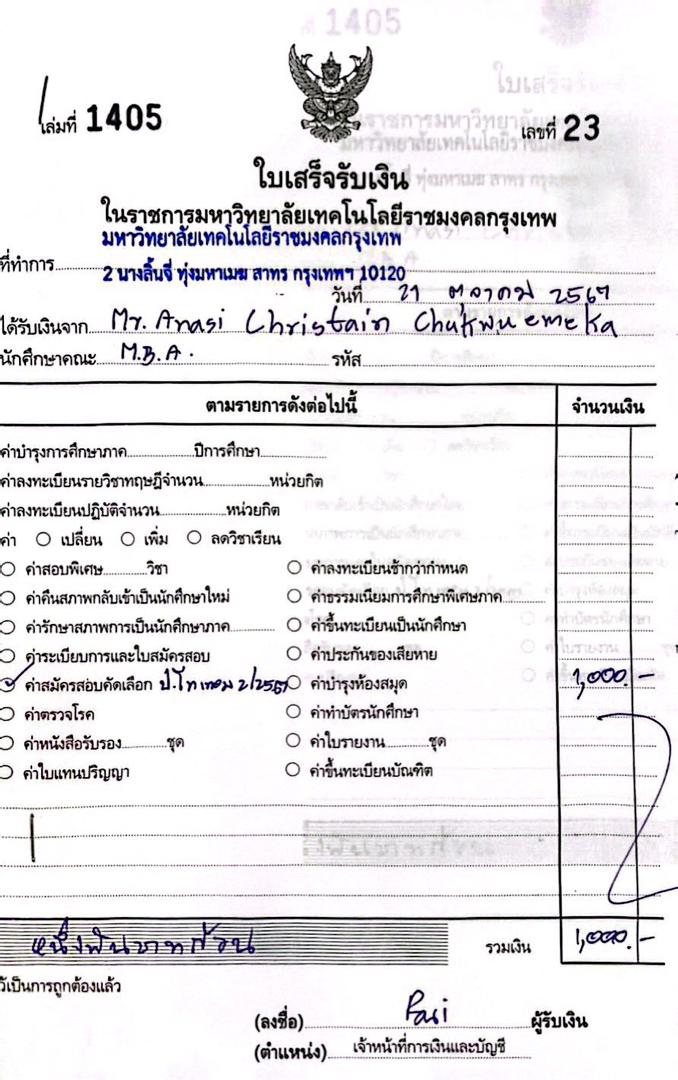 เล่มที่ 1405
เลขที่ 23
ใบเสร็จรับเงิน
ในราชการมหาวิทยาลัยเทคโนโลยีราชมงคลกรุงเทพ
มหาวิทยาลัยเทคโนโลยีราชมงคลกรุงเทพ
ที่ทำการ
2 นางลิ้นจี่ ทุ่งมหาเมฆ สาทร กรุงเทพฯ 10120
วันที่ 21 ตุลาคม 2567
ได้รับเงินจาก Mr. Anasi Christain Chukwuemeka
นักศึกษาคณะ M.B.A. รหัส
ตามรายการดังต่อไปนี้ จำนวนเงิน
ค่าบำรุงการศึกษาภาค ปีการศึกษา
ค่าลงทะเบียนรายวิชาทฤษฎีจำนวน หน่วยกิต
ค่าลงทะเบียนปฏิบัติจำนวน หน่วยกิต
ค่า เปลี่ยน เพิ่ม ลดวิชาเรียน
ค่าสอบพิเศษ วิชา ค่าลงทะเบียนช้ากว่ากำหนด
ค่าคืนสภาพกลับเข้าเป็นนักศึกษาใหม่ ค่าธรรมเนียมการศึกษาพิเศษภาค
ค่ารักษาสภาพการเป็นนักศึกษาภาค ค่าขึ้นทะเบียนเป็นนักศึกษา
ค่าระเบียบการและใบสมัครสอบ ค่าประกันของเสียหาย
ค่าสมัครสอบคัดเลือก ป.โท เทอม 2/2567 ค่าบำรุงห้องสมุด 1,000.-
ค่าตรวจโรค ค่าทำบัตรนักศึกษา
ค่าหนังสือรับรอง ชุด ค่าใบรายงาน ชุด
ค่าใบแทนปริญญา ค่าขึ้นทะเบียนบัณฑิต
หนึ่งพันบาทถ้วน รวมเงิน 1,000.-
ว้เป็นการถูกต้องแล้ว
(ลงชื่อ) ผู้รับเงิน
(ตำแหน่ง) เจ้าหน้าที่การเงินและบัญชี